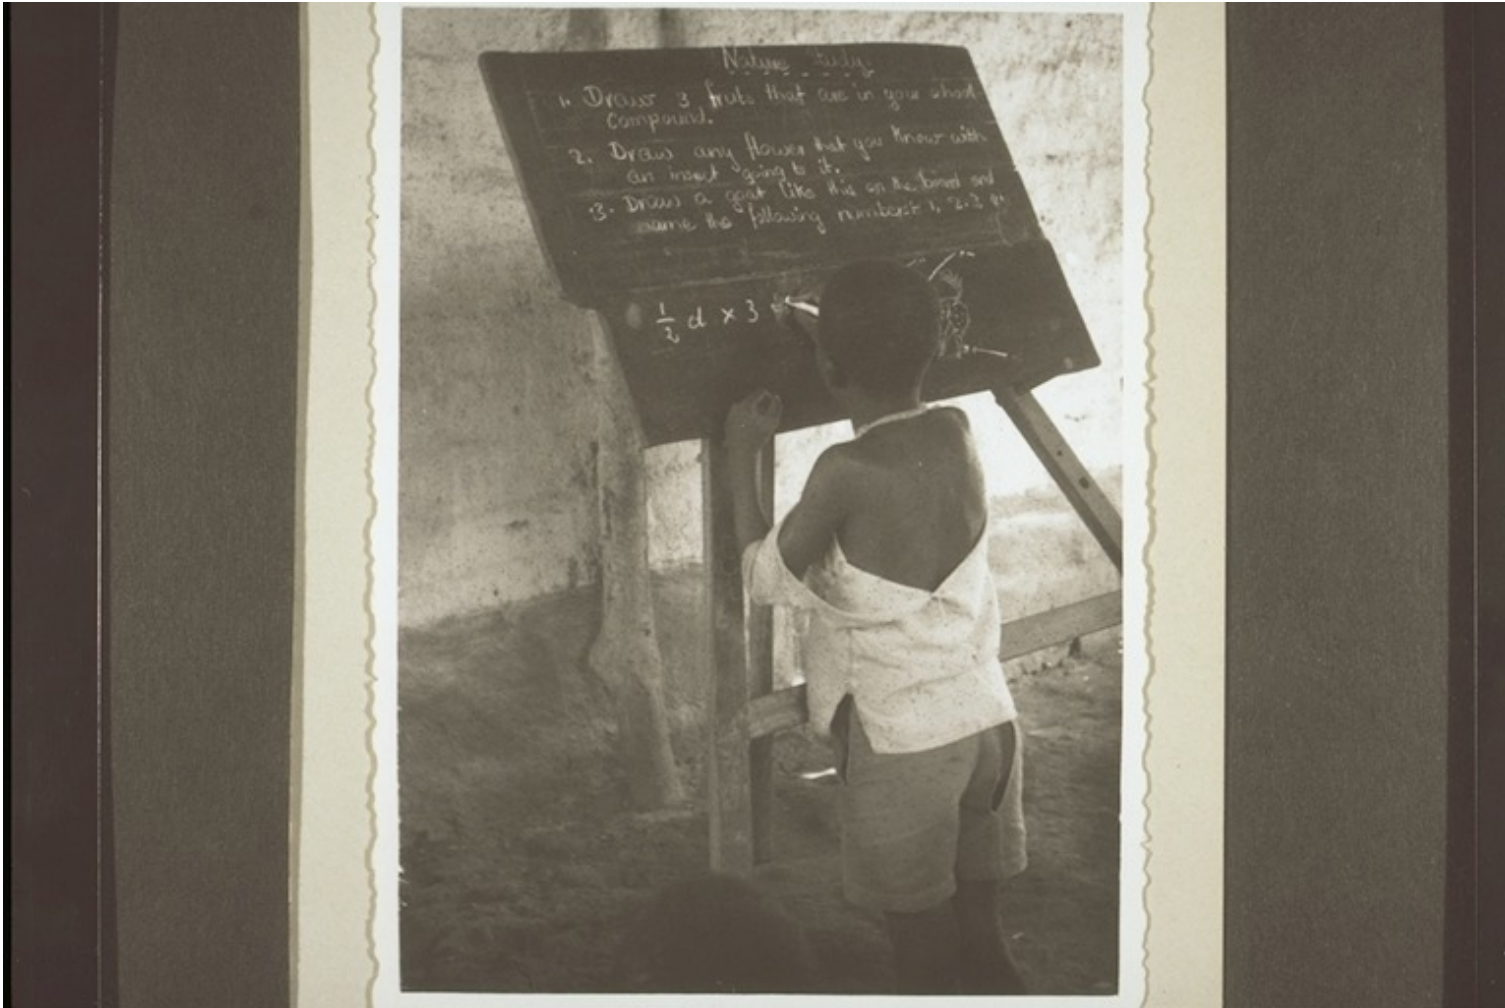 Nature Study.
1. Draw 3 fruts that are in your school
compound.
2. Draw any flower that you know with
an insect going to it.
3. Draw a goat like this on the board and
name the following numbers 1, 2. 3
1/2 d × 3